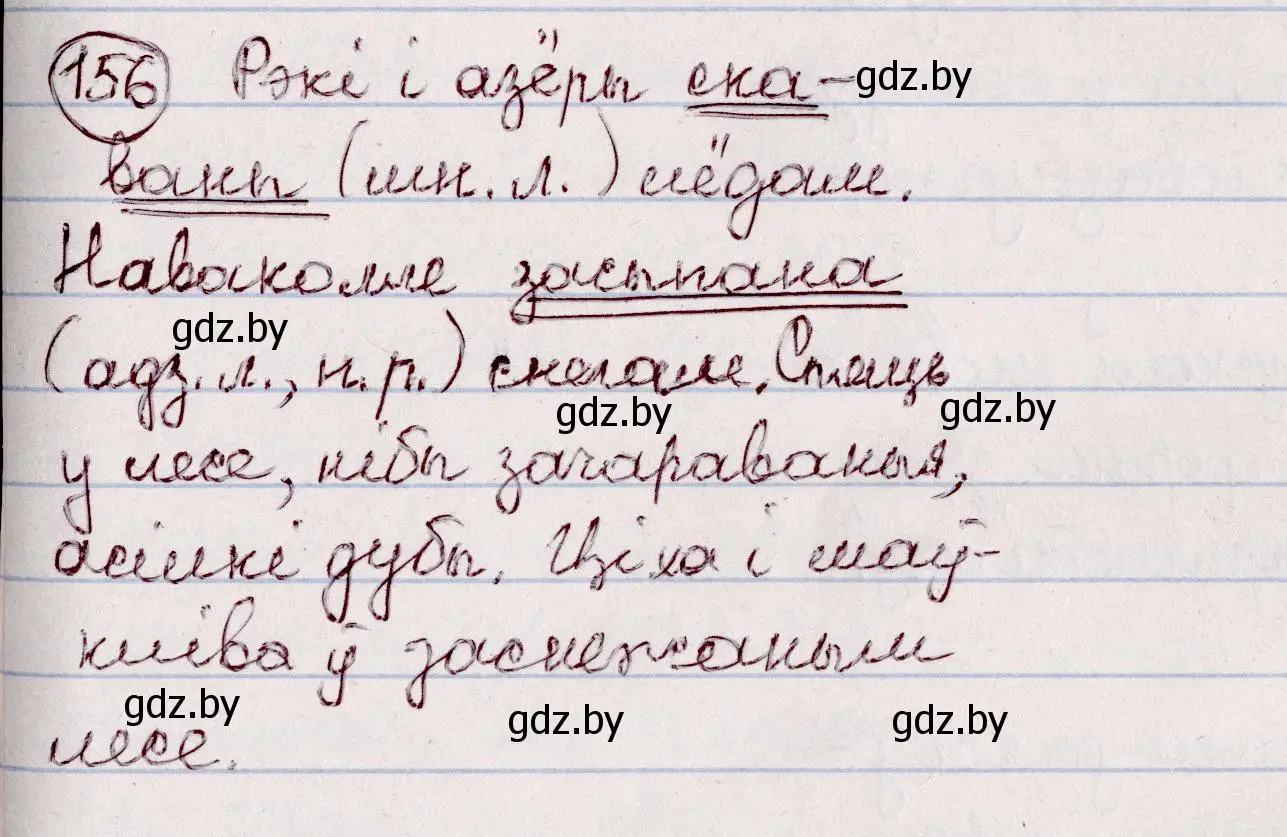 156 Рэкі і азёры ска- gdz.by
ваны (мн. л.) лёдам.
Наваколле засыпана
gdz.by
(адз. л., н. р.) снегам. Спяць
gdz.by gdz.by
у лесе, нібы зачараваныя,
асілкі дубы. Ціха і маў-
кліва ў заснежаным
gdz.by gdz.by gdz.by
лесе.